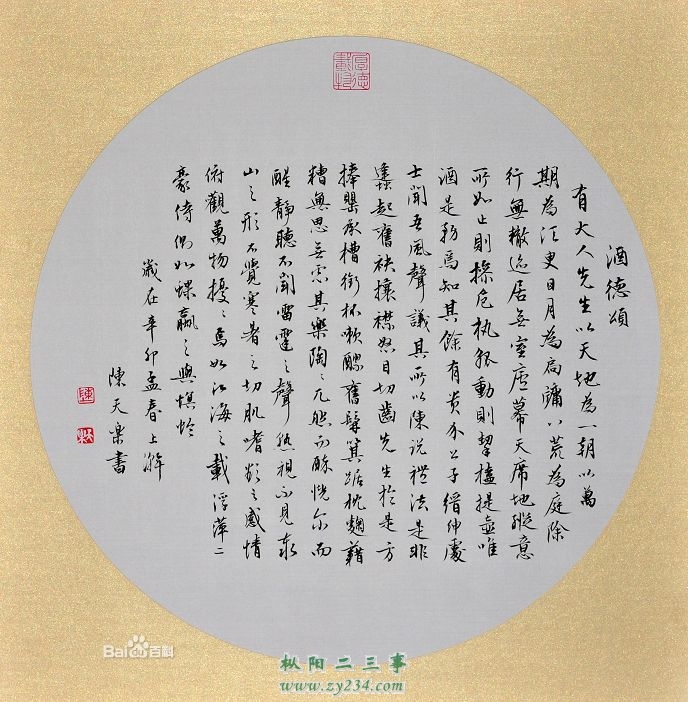 厚德載物
酒德頌
有大人先生以天地為一朝以萬
期為須臾日月為扃牖八荒為庭除
行無轍迹居无室廬幕天席地縱意
所如止則操卮執觚動則挈榼提壺唯
酒是務焉知其餘有貴介公子縉紳處
士聞吾風聲議其所以陳說禮法是非
蠭起奮袂攘襟怒目切齒先生於是方
捧罌承槽銜杯嗽醪奮髯箕踞枕麴藉
糟無思无慮其樂陶〻兀然而醉恍尔而
醒靜聽不聞雷霆之聲熟視不見泰
山之形不覺寒暑之切肌嗜欲之感情
俯觀萬物擾〻焉如江海之載浮萍二
豪侍側如蜾蠃之與螟蛉
歲在辛卯孟春上澣
陳天樂書
Bai百科
枞阳二三事
www.zy234.com